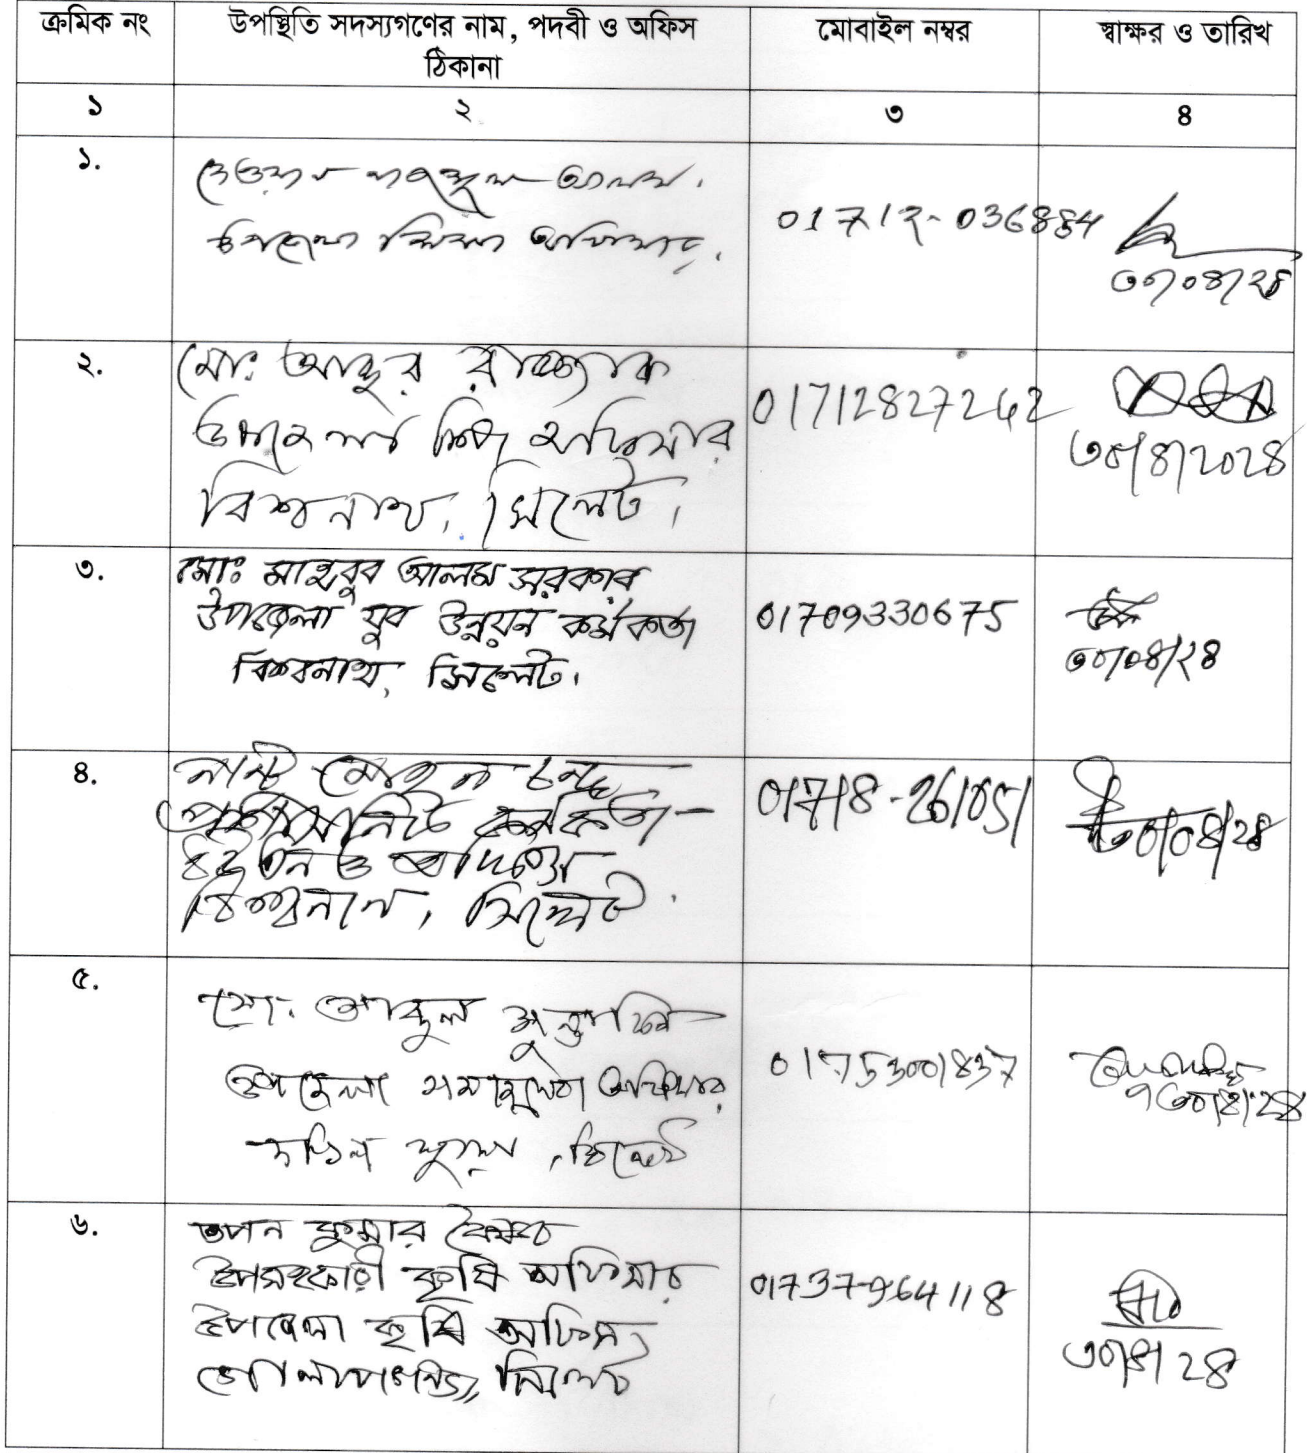 ক্রমিক নং উপস্থিতি সদস্যগণের নাম, পদবী ও অফিস মোবাইল নম্বর স্বাক্ষর ও তারিখ
ঠিকানা
১ ২ ৩ ৪
১.
আলম।
উপজেলা শিক্ষা অফিসার।
01712-036884
৩০/০৪/২৪
২.
মোঃ আব্দুর রাজ্জাক
উপজেলা অফিসার
বিশ্বনাথ, সিলেট।
01712827262
৩০/৪/২০২৪
৩.
মোঃ মাহবুব আলম সরকার
উপজেলা যুব উন্নয়ন কর্মকর্তা
বিশ্বনাথ, সিলেট।
01709330675
৩০/০৪/২৪
৪.
মোহন চন্দ
কর্মকর্তা
ও
বিশ্বনাথ, সিলেট
01718-261051
৩০/০৪/২৪
৫.
মো: আব্দুল
উপজেলা সমাজসেবা অফিসার
দক্ষিণ সুরমা, সিলেট
01753001837
৩০/৪/২৪
৬.
তপন কুমার বৈষ্ণব
উপসহকারী কৃষি অফিসার
উপজেলা কৃষি অফিস,
গোলাপগঞ্জ, সিলেট
01737964118
৩০/৪/২৪